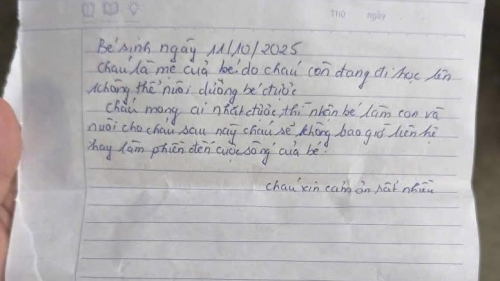 Thứ ngày
Bé sinh ngày 11/10/2025
cháu là mẹ của bé do cháu còn đang đi học lên
không thể nuôi dưỡng bé được
Cháu mong ai nhặt được thì nhận bé làm con và
nuôi cho cháu sau này cháu sẽ không bao giờ liên hệ
hay làm phiền đến cuộc sống của bé.
cháu xin cảm ơn rất nhiều